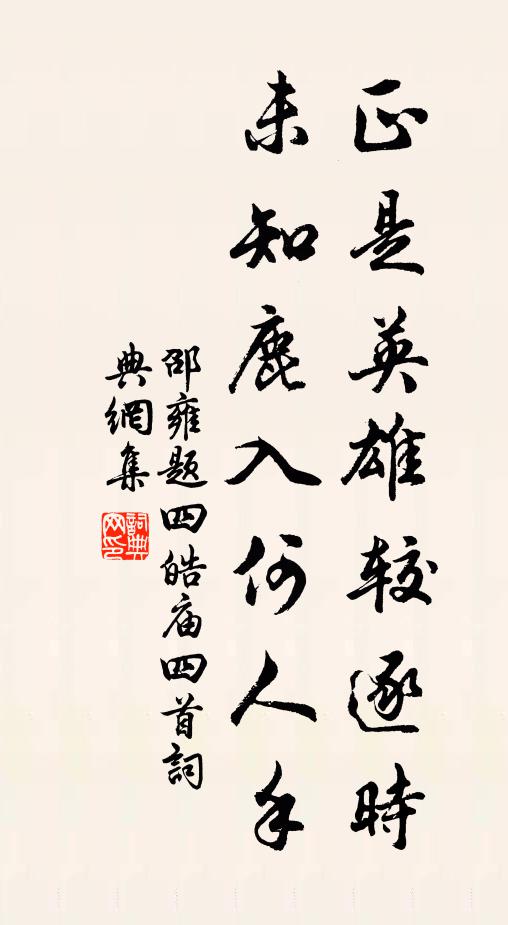 正是英雄較逐時
未知鹿入何人手
邵雍題四皓庙四首詞
典網集
詞典
网印